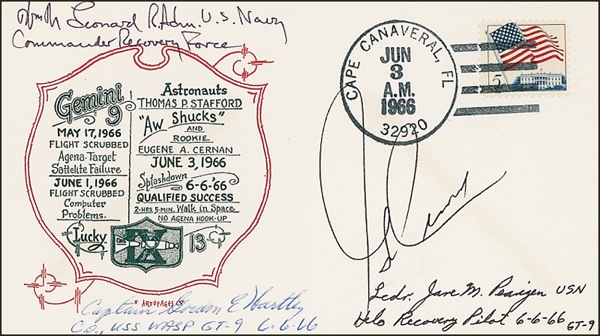 Wm M Leonard R.Adm. U.S. Navy
Commander Recovery Force
Gemini
9
MAY 17, 1966
FLIGHT SCRUBBED
Agena-Target
Sattelite Failure
JUNE 1, 1966
FLIGHT SCRUBBED
Computer
Problems.
Astronauts
THOMAS P. STAFFORD
"Aw Shucks"
AND
ROOKIE
EUGENE A. CERNAN
JUNE 3, 1966
Splashdown 6-6-'66
QUALIFIED SUCCESS
2-HRS. 5-MIN. Walk in Space
NO AGENA HOOK-UP
Lucky IX 13
CAPE CANAVERAL, FL
JUN
3
A.M.
1966
32920
5c
Captain Gordon E Hartley
C.O., USS WASP GT-9 6-6-66
Lcdr. Jare M. Pearigen USN
Helo Recovery Pilot 6-6-66
GT-9